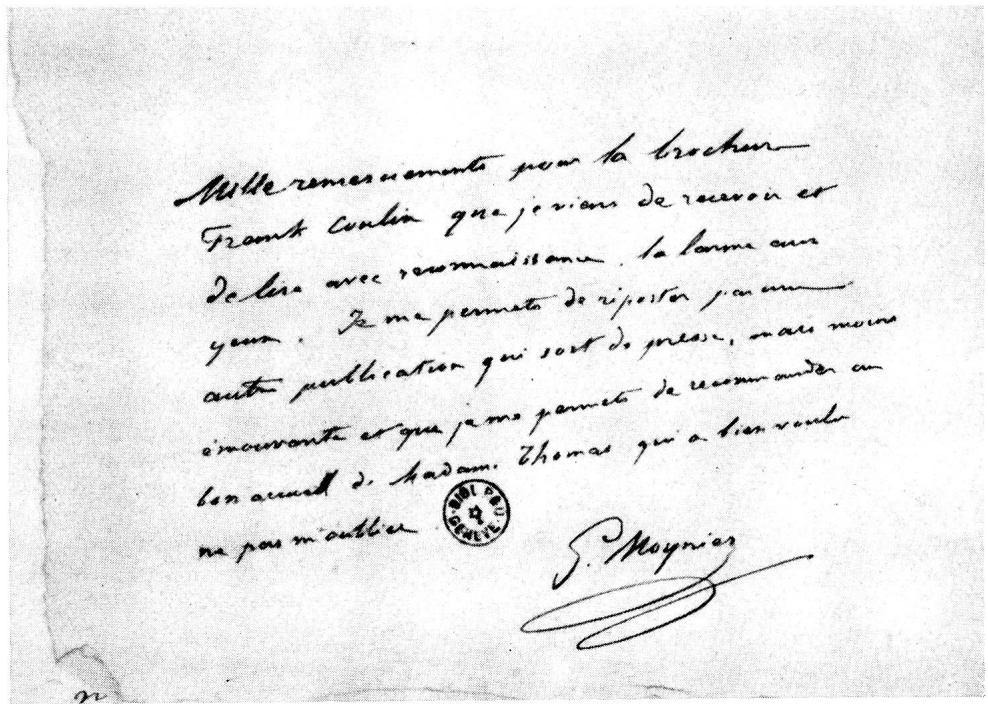 Mille remerciements pour la brochure
Frank Coulin que je viens de recevoir et
de lire avec reconnaissance, la larme aux
yeux. Je me permets de riposter par une
autre publication qui sort de presse, mais moins
émouvante et que je me permets de recommander au
bon accueil de Madame Thomas qui a bien voulu
ne pas m'oublier
BIBL. PBL. U
GENÈVE
G. Moynier